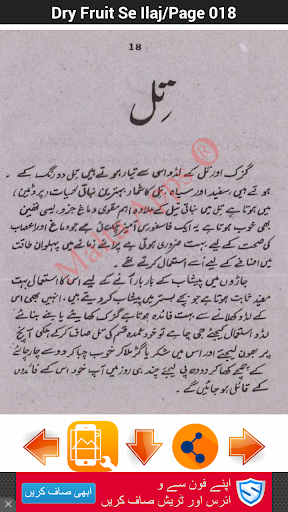 Dry Fruit Se Ilaj/Page 018
18
تِل
گزک اور تل کے لڈو اسی سے تیار ہوتے ہیں تل دو رنگ کے
ہوتے ہیں، سفید اور سیاہ۔ تل کا شمار بہترین نباتی لحمیات (پروٹین)
میں ہوتا ہے تل میں نباتی تیل کے علاوہ اہم مقوی دماغ جزو، لیسی تھین
بھی خوب ہوتا ہے یہ ایک فاسفورس آمیز چکنائی ہے جو دماغ اور اعصاب
کی صحت کے لیے بہت ضروری ہوتی ہے پرانے زمانے میں پہلوان طاقت
میں اضافے کے لیے اسے استعمال کرتے تھے
جاڑوں میں پیشاب کے بار بار آنے کے لیے اس کا استعمال بہت
مفید ثابت ہوتا ہے جو بچے بستر میں پیشاب کر دیتے ہیں، انہیں بھی اس
کے لڈو کھلانے سے بہت فائدہ ہوتا ہے گزک کھائیے یا بنے بنائے
لڈو استعمال کیجئے جی چاہے تو خود عمدہ قسم کی تل صاف کر کے ہلکی آنچ
پر بھون لیجئے اور اس میں شکر یا گڑ ملا کر خوب چبا کر دو سے چار چائے
کے چمچے کھا کر دودھ پی لیجئے چند ہی روز میں آپ خود اس کے فائدوں
کے قائل ہو جائیں گے۔
Maza Apps ®
اپنے فون سے و
ائرس اور ٹریش صاف کریں
ابھی صاف کریں